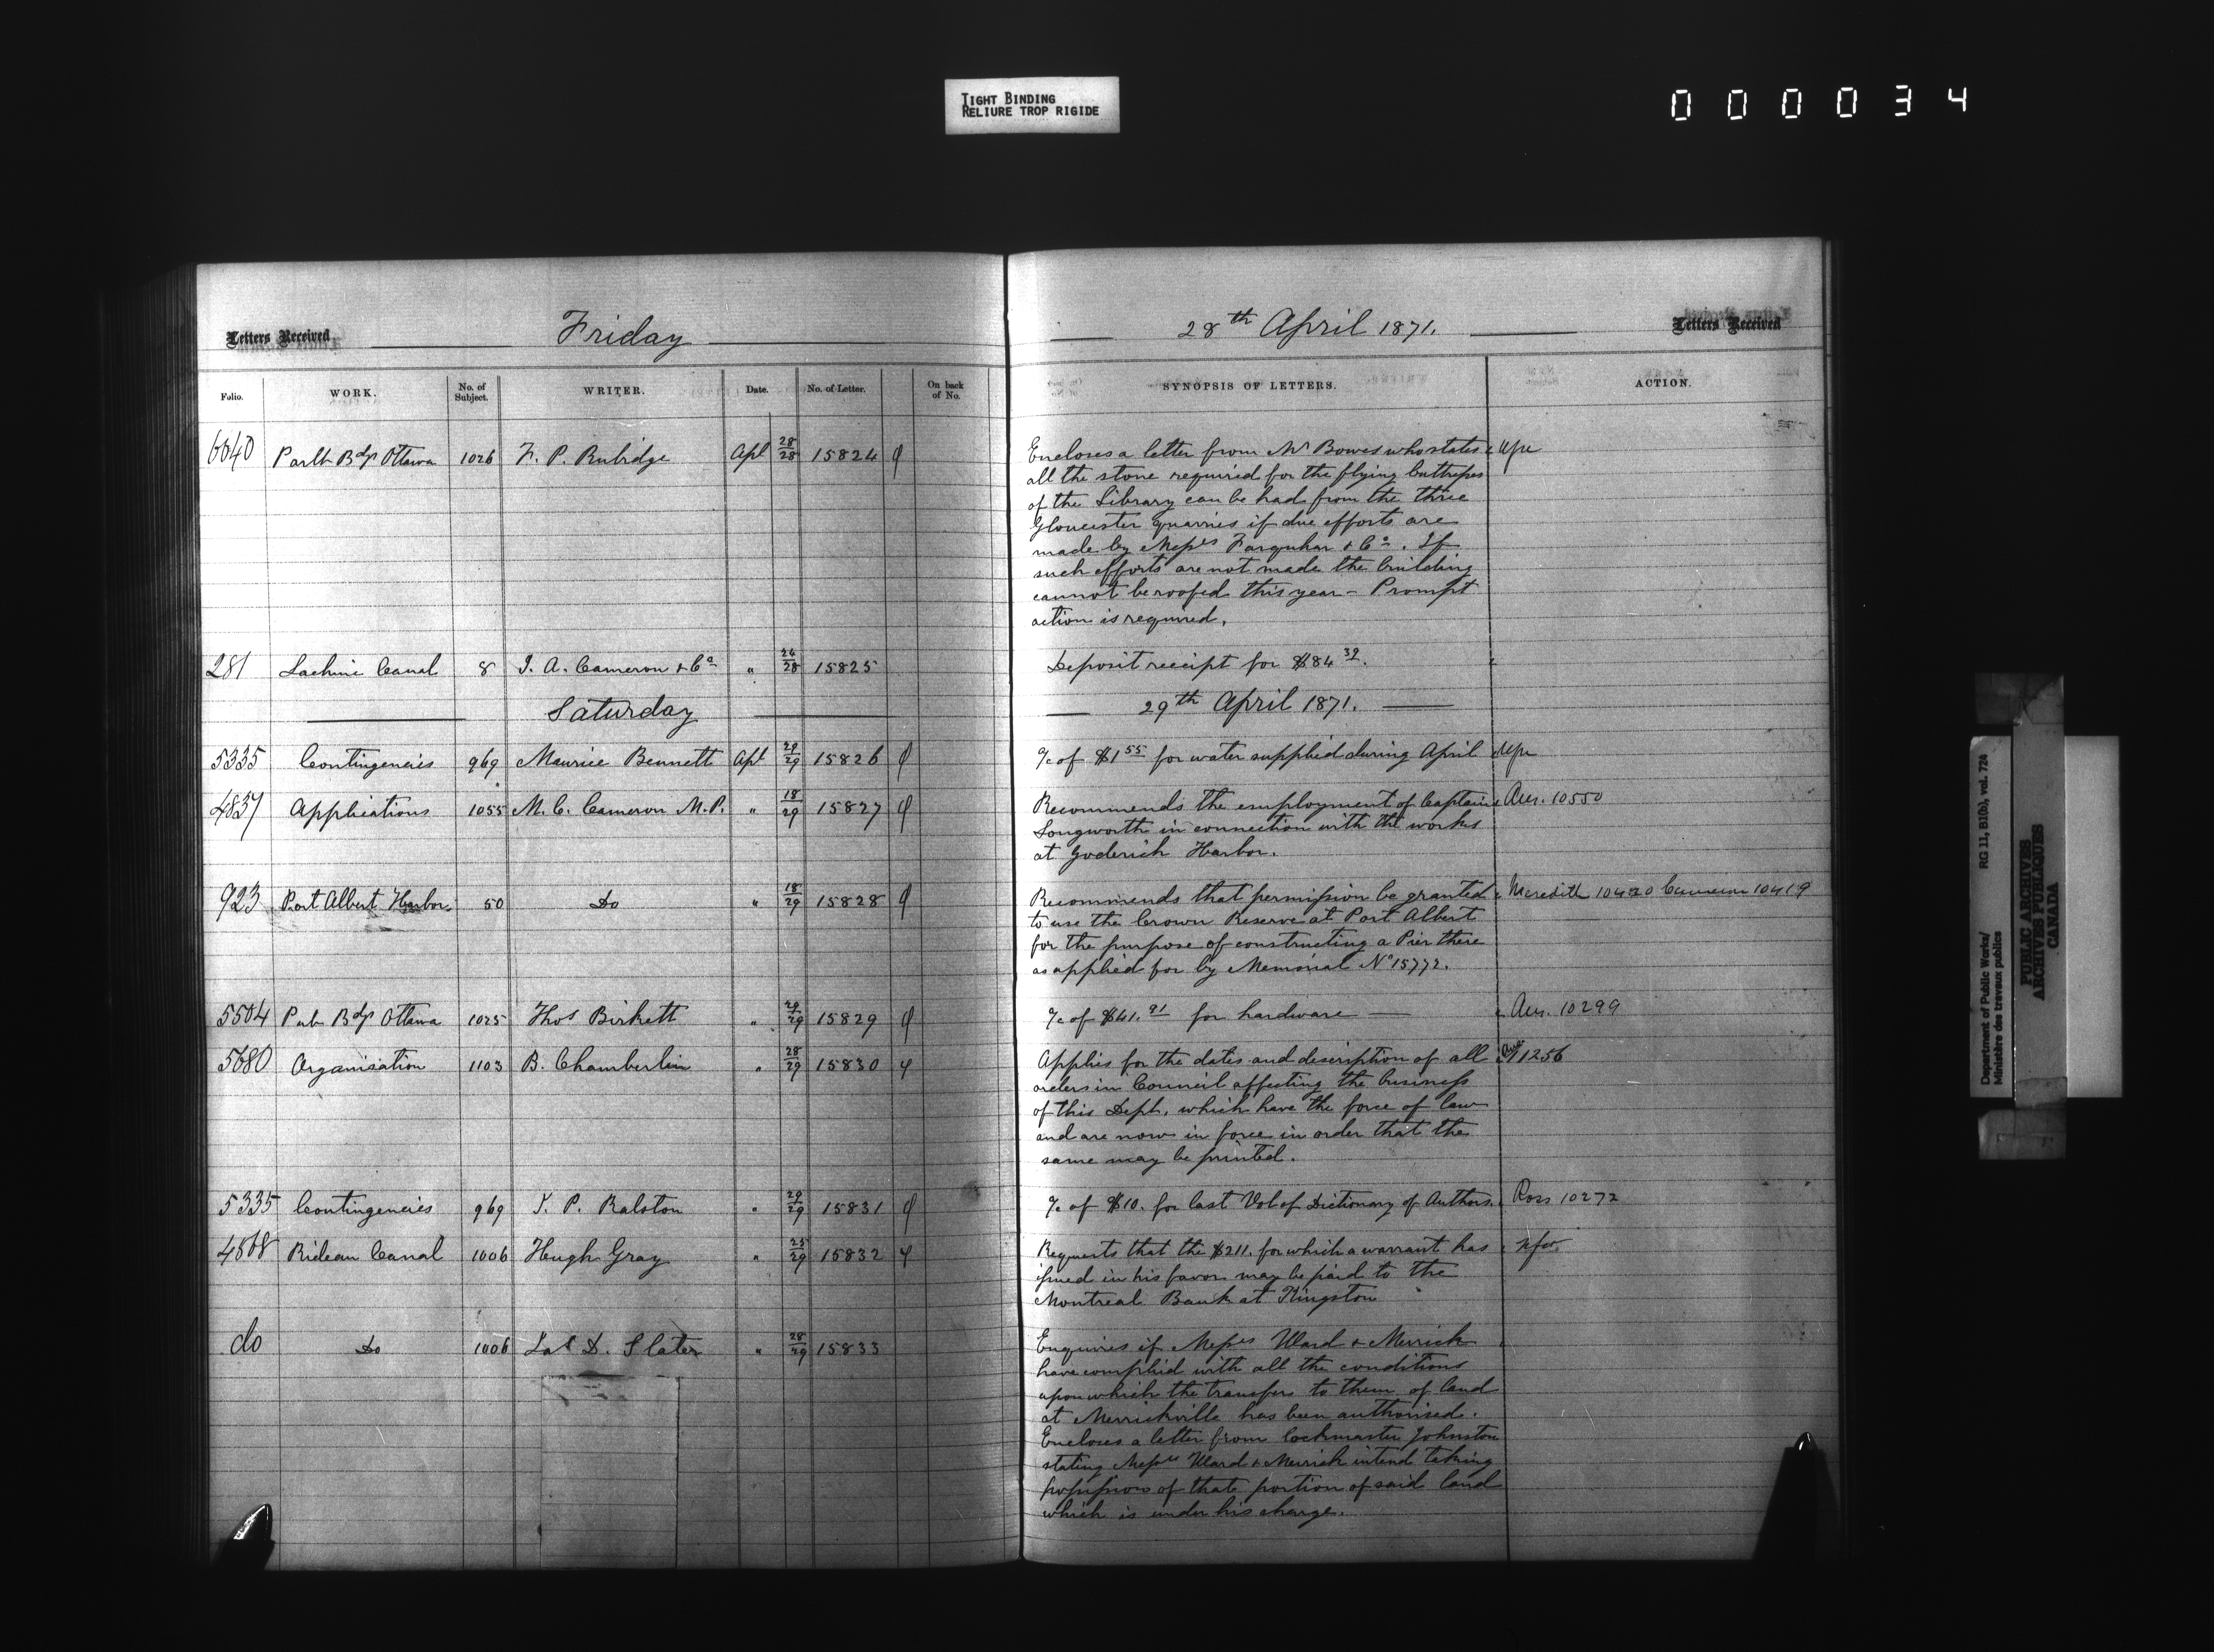 TIGHT BINDING
RELIURE TROP RIGIDE
000034
Letters Received
Friday
28th April 1871.
Letters Received
Folio. WORK. No. of Subject. WRITER. Date. No. of Letter. On back of No. SYNOPSIS OF LETTERS. ACTION.
6040 Parlt Bdgs Ottawa 1026 F. P. Rubidge Apl 28/28 15824 Encloses a letter from Mr Bowes who states
all the stone required for the flying buttresses
of the Library can be had from the three
Gloucester quarries if due efforts are
made by Messrs Farquhar & Co. If
such efforts are not made the building
cannot be roofed this year - Prompt
action is required.
281 Lachine Canal 8 J. A. Cameron & Co " 26/28 15825 Deposit receipt for $84 39.
Saturday 29th April 1871.
5335 Contingencies 969 Maurice Bennett Apl 29/29 15826 a/c of $1 55 for water supplied during April
4837 Applications 1055 M. C. Cameron M.P. " 18/29 15827 Recommends the employment of Captain Ans. 10550
Longworth in connection with the works
at Goderich Harbor.
923 Port Albert Harbor 50 Do " 18/29 15828 Recommends that permission be granted Meredith 10420 Cameron 10419
to use the Crown Reserve at Port Albert
for the purpose of constructing a Pier there
as applied for by Memorial No 15772.
5504 Pub Bdgs Ottawa 1025 Thos Birkett " 29/29 15829 a/c of $41. 91 for hardware — Ans. 10299
5680 Organisation 1103 B. Chamberlin " 28/29 15830 Applies for the dates and description of all Ans 11256
orders in Council affecting the business
of this Dept. which have the force of law
and are now in force in order that the
same may be printed.
5335 Contingencies 969 J. P. Ralston " 29/29 15831 a/c of $10. for last Vol of Dictionary of Authors. Ross 10272
4568 Rideau Canal 1006 Hugh Gray " 25/29 15832 Requests that the $211. for which a warrant has
issued in his favor may be paid to the
Montreal Bank at Kingston
do Do 1006 Jas D. Slater " 28/29 15833 Enquires if Messrs Ward & Merrick
have complied with all the conditions
upon which the transfer to them of land
at Merrickville has been authorised.
Encloses a letter from Lockmaster Johnston
stating Messrs Ward & Merrick intend taking
possession of that portion of said land
which is under his charge.
Department of Public Works/ RG 11, B10(b), vol. 724
Ministère des travaux publics
PUBLIC ARCHIVES
ARCHIVES PUBLIQUES
CANADA